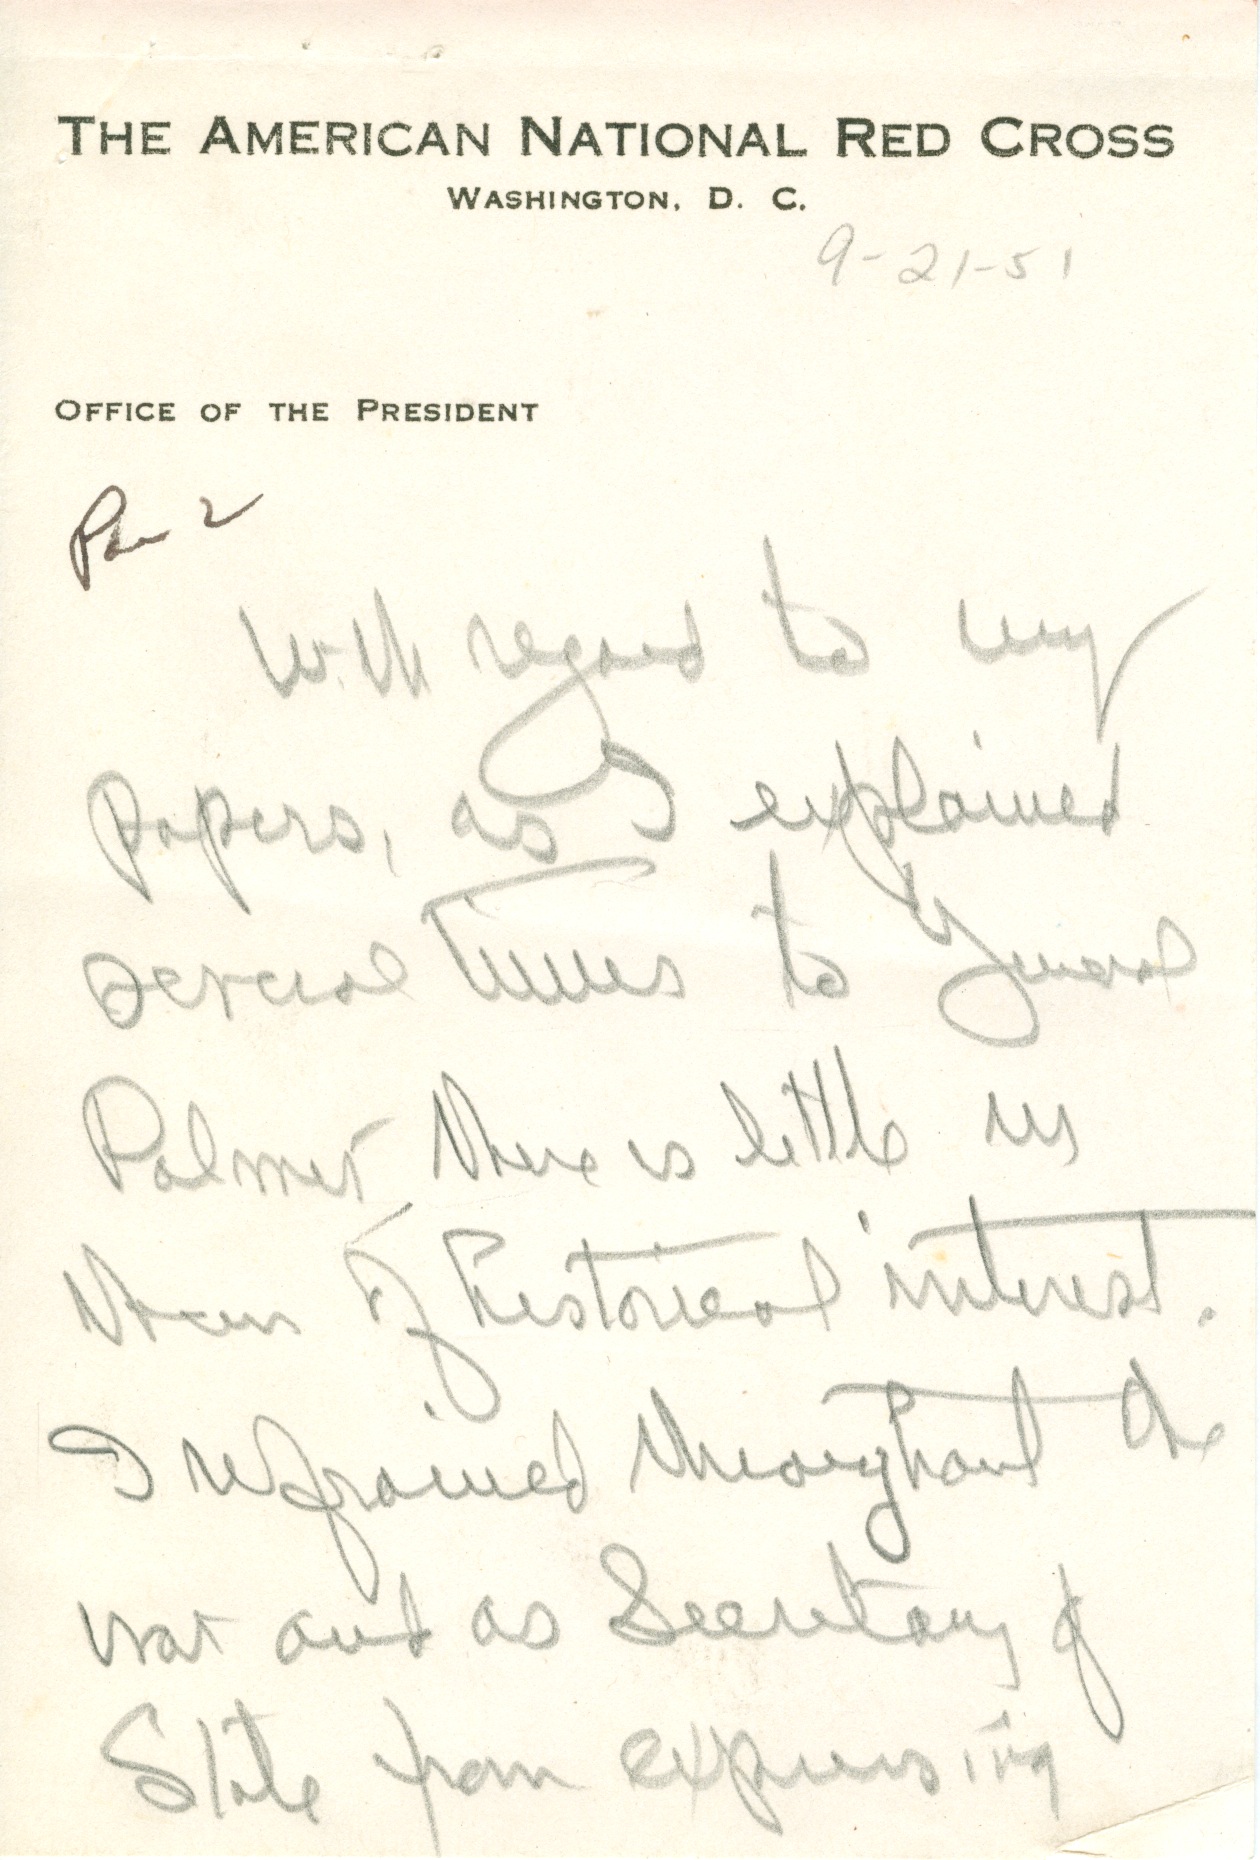 THE AMERICAN NATIONAL RED CROSS
WASHINGTON, D. C.
9-21-51
OFFICE OF THE PRESIDENT
Par 2
With regard to my
papers, as I explained
several times to General
Palmer there is little in
them of historical interest.
I refrained throughout the
war and as Secretary of
State from expressing